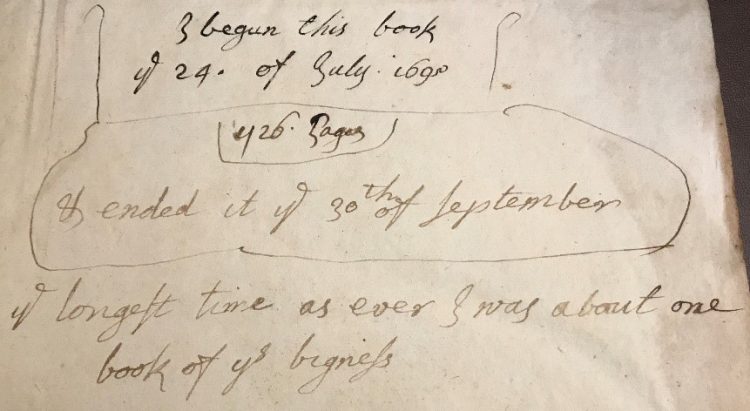 I begun this book
yᵉ 24. of July. 1690
426. Pages
& ended it yᵉ 30th of September
yᵉ longeſt time as ever I was about one
book of yˢ bigneſs